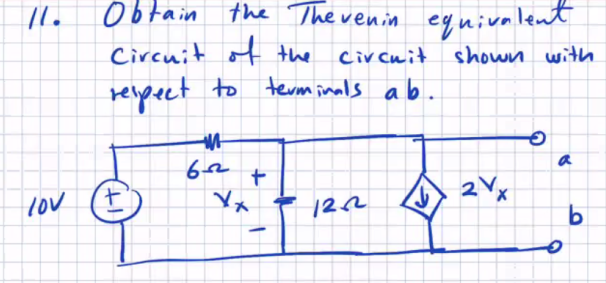 11. Obtain the Thevenin equivalent
Circuit of the circuit shown with
respect to terminals ab.
6Ω
+
a
10V
+
-
Vx
12Ω
2Vx
b
-